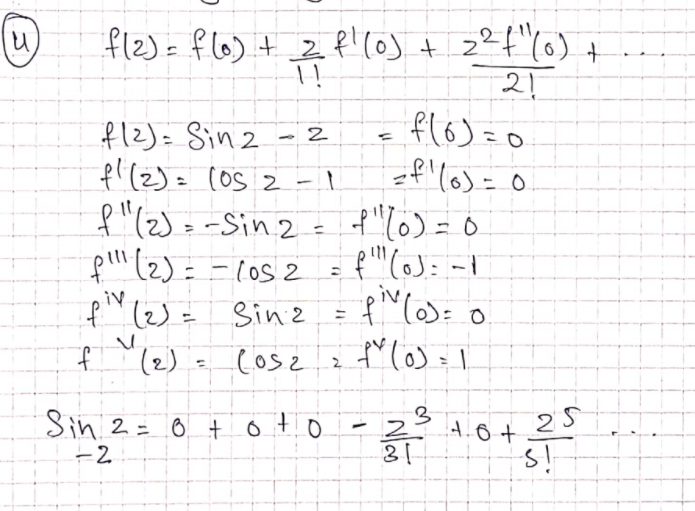 4
f(z) = f(0) + z/1! f'(0) + z²f''(0)/2! + ...
f(z) = Sin z - z = f(0) = 0
f'(z) = cos z - 1 = f'(0) = 0
f''(z) = -Sin z = f''(0) = 0
f'''(z) = - cos z = f'''(0) = -1
f^iv(z) = Sin z = f^iv(0) = 0
f^v(z) = cos z = f^v(0) = 1
Sin z - z = 0 + 0 + 0 - z³/3! + 0 + z⁵/5! ...